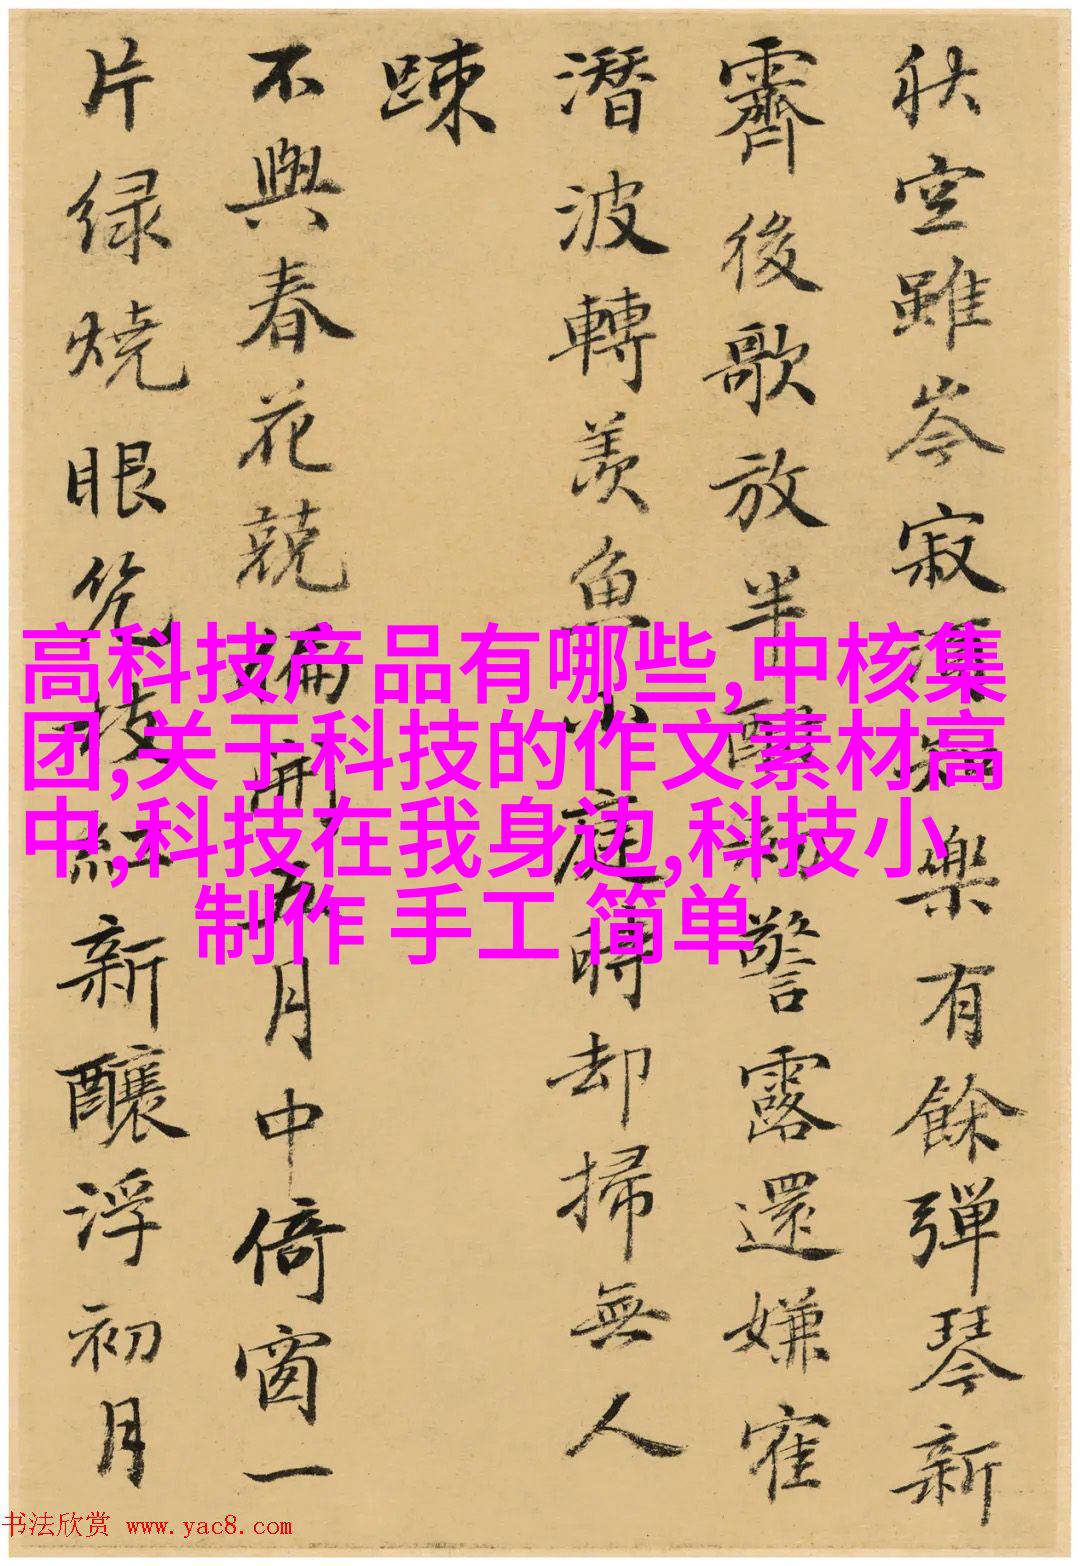 秋空雖岑寂凍和樂有餘彈琴新
霽後歌放半酣初警露還嫌寉
潛波轉羨魚小庭時却掃無人
踈
不與春花競偏開五月中倚窗一
片緑燒眼幾枝紅新釀浮初月
高科技产品有哪些,中核集
团,关于科技的作文素材高
中,科技在我身边,科技小
制作 手工 简单
书法欣赏 www.yac8.com